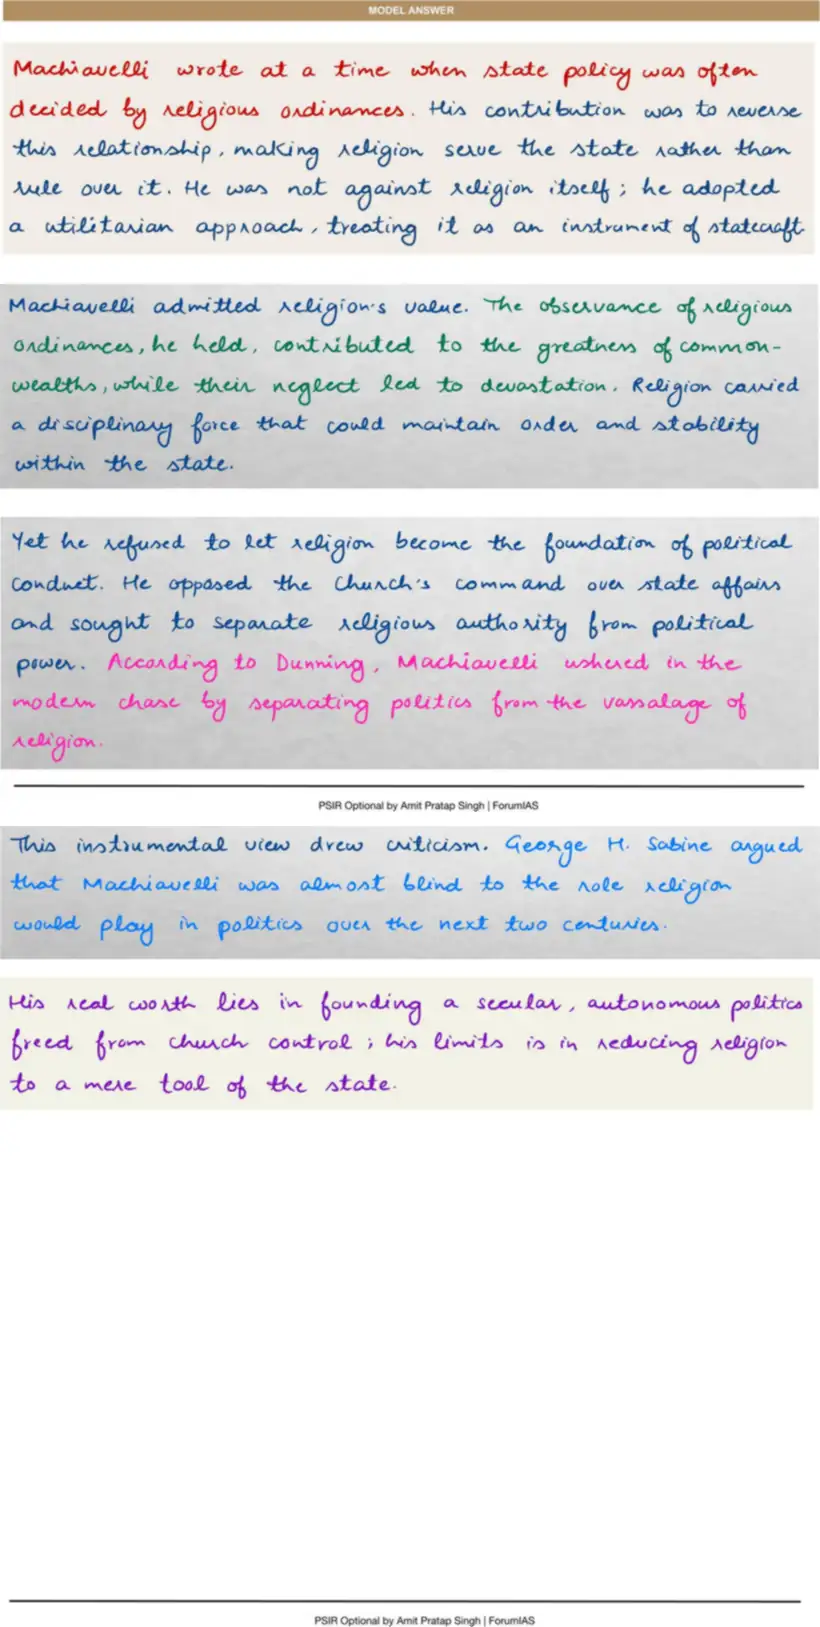 MODEL ANSWER
Machiavelli wrote at a time when state policy was often
decided by religious ordinances. His contribution was to reverse
this relationship, making religion serve the state rather than
rule over it. He was not against religion itself; he adopted
a utilitarian approach, treating it as an instrument of statecraft
Machiavelli admitted religion's value. The observance of religious
ordinances, he held, contributed to the greatness of common-
wealths, while their neglect led to devastation. Religion carried
a disciplinary force that could maintain order and stability
within the state.
Yet he refused to let religion become the foundation of political
conduct. He opposed the Church's command over state affairs
and sought to separate religious authority from political
power. According to Dunning, Machiavelli ushered in the
modern chase by separating politics from the vassalage of
religion.
PSIR Optional by Amit Pratap Singh | ForumIAS
This instrumental view drew criticism. George H. Sabine argued
that Machiavelli was almost blind to the role religion
would play in politics over the next two centuries.
His real worth lies in founding a secular, autonomous politics
freed from church control; his limits is in reducing religion
to a mere tool of the state.
PSIR Optional by Amit Pratap Singh | ForumIAS